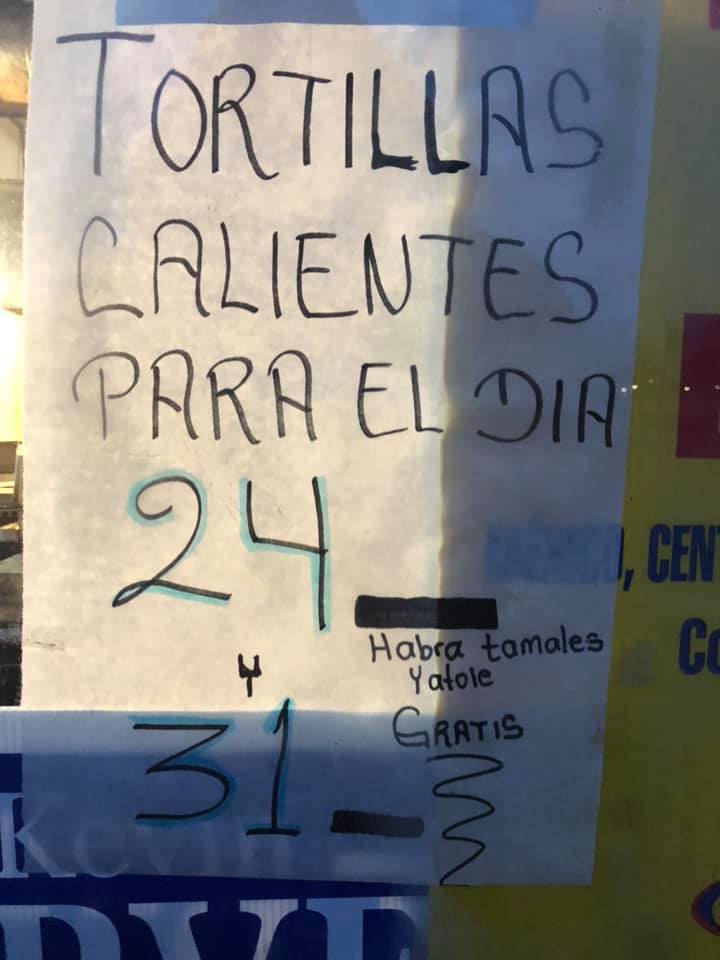 TORTILLAS
CALIENTES
PARA EL DIA
24
Habra tamales
Y atole
y
GRATIS
31
, CEN
Co
Kevin
RVE